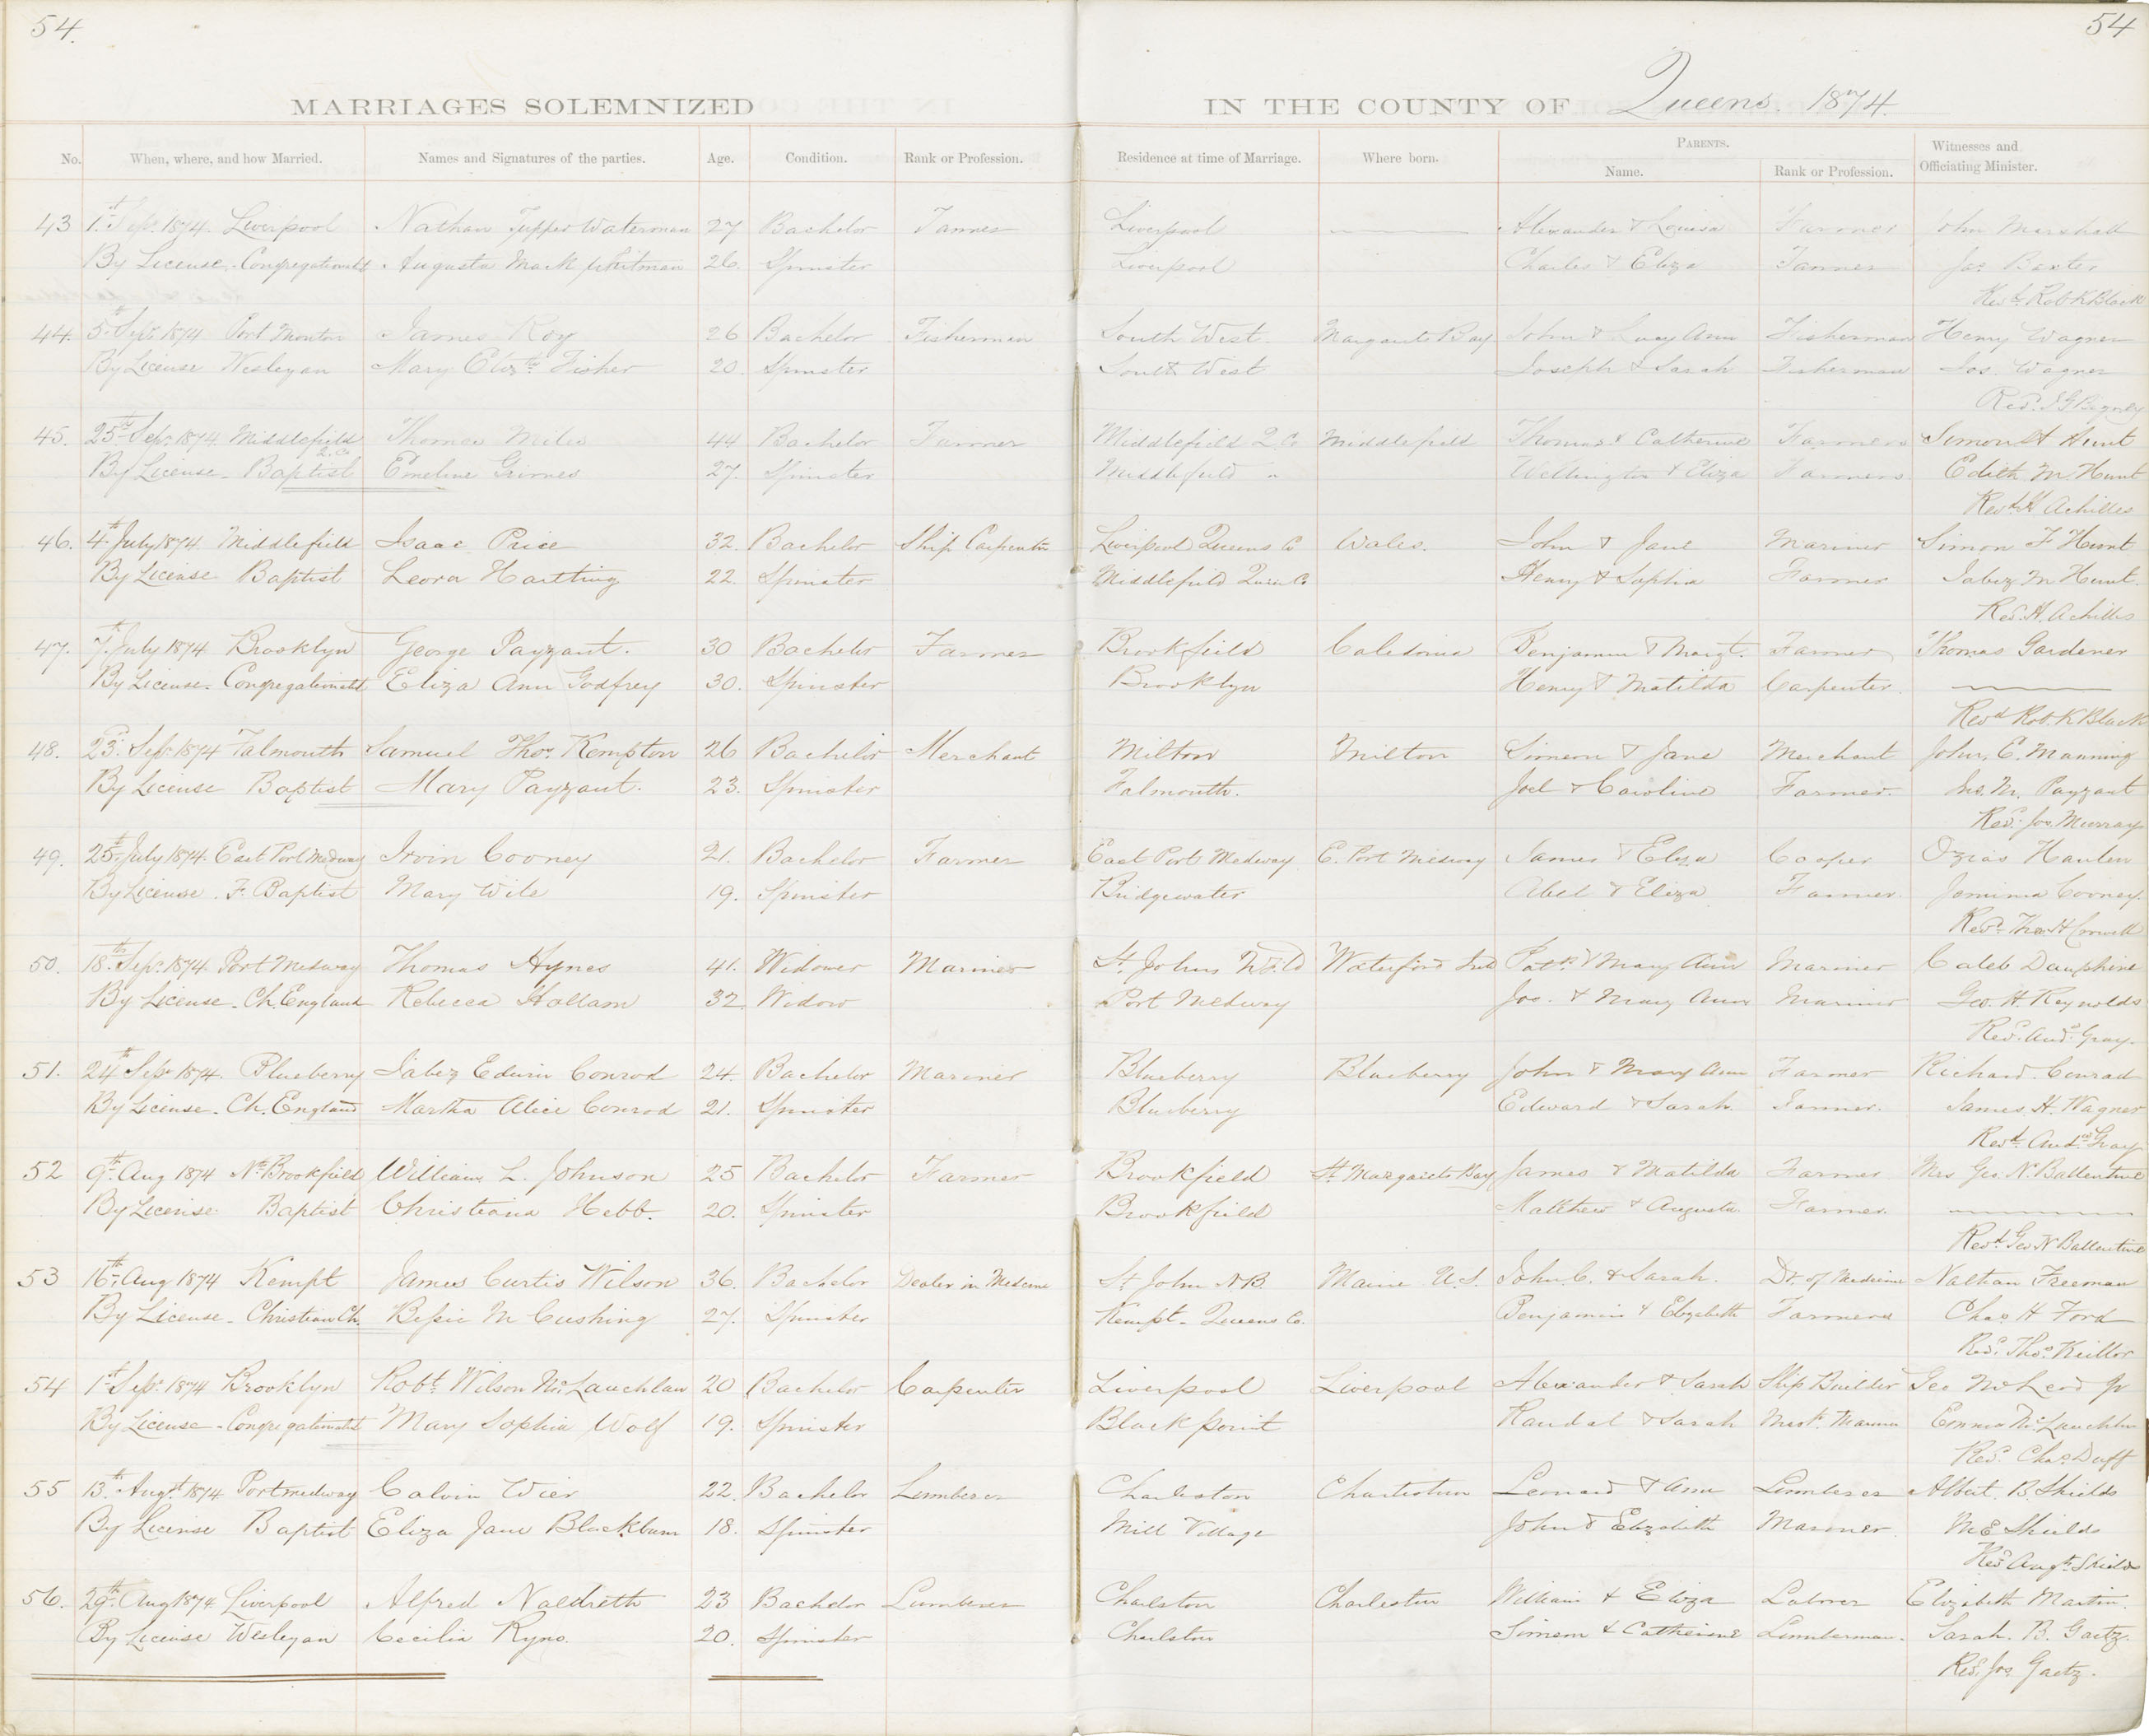 54. 54
MARRIAGES SOLEMNIZED IN THE COUNTY OF Queens. 1874.
No. When, where, and how Married. Names and Signatures of the parties. Age. Condition. Rank or Profession. Residence at time of Marriage. Where born. PARENTS. Witnesses and
Name. Rank or Profession. Officiating Minister.
43 1st Sepr 1874. Liverpool Nathan Tupper Waterman 27 Bachelor Tanner Liverpool Alexander & Louisa Farmer John Marshall
By License. Congregationlst Augusta Mack Whitman 26. Spinster Liverpool Charles & Eliza Tanner Jas Baxter
Revd Rob K Black
44. 5th Sepr 1874 Port Mouton James Roy 26 Bachelor Fisherman South West. Margarets Bay John & Lucy Ann Fisherman Henry Wagner
By License Wesleyan Mary Elizth Fisher 20. Spinster South West Joseph & Sarah Fisherman Jos. Wagner
Revd. J G Bigney
45. 25th Sepr 1874 Middlefield Thomas Miles 44 Bachelor Farmer Middlefield Q. Co Middlefield Thomas & Catherine Farmers Simon St Hunt
Q. Co
By License - Baptist Emeline Grimes 27. Spinster Middlefield " Wellington & Eliza Farmers Edith M. Hunt
Revd H Achilles
46. 4th July 1874. Middlefield Isaac Price 32. Bachelor Ship Carpenter Liverpool Queens Co Wales. John & Jane Mariner Simon F Hunt
By License Baptist Leora Hartting 22. Spinster Middlefield Queen Co Henry & Sophia Farmer Jabez M Hunt.
Rev. H. Achilles
47. 7th July 1874 Brooklyn George Payzant. 30 Bachelor Farmer Brookfield Caledonia Benjamin & Margt. Farmer Thomas Gardener
By License. Congregationalist Eliza Ann Godfrey 30. Spinster Brooklyn Henry & Matilda Carpenter.
Revd Rob. K Black
48. 23d Sepr 1874 Falmouth Samuel Thos. Kempton 26 Bachelor Merchant Milton Milton Simeon & Jane Merchant John, E. Manning
By License Baptist Mary Payzant. 23. Spinster Falmouth. Joel & Caroline Farmer. Jno. M. Payzant
Revd. Jos. Murray
49. 25th July 1874. East Port Medway Irvin Cooney 21. Bachelor Farmer East Port Medway E. Port Medway James & Eliza Cooper Ozias Hanlen
By License. F. Baptist Mary Wile 19. Spinster Bridgewater Abel & Eliza Farmer. Jemima Cooney.
Revd. Thos H Crowell
50. 18th Sepr 1874. Port Medway Thomas Hynes 41. Widower Mariner St. Johns Nfld Waterford Ird Patk & Mary Ann Mariner Caleb Dauphine
By License. Ch. England Rebecca Hallam 32 Widow Port Medway Jos. & Mary Ann Mariner Geo. H. Reynolds
Revd. Andw Gray.
51. 24th Sepr 1874. Blueberry Jabez Edwin Conrod 24. Bachelor Mariner Blueberry Blueberry John & Mary Ann Farmer Richard. Conrad
By License. Ch. England Martha Alice Conrod 21. Spinster Blueberry Edward & Sarah. Farmer. James. H. Wagner
Revd. Andw Gray
52 9th Aug 1874 Nth Brookfield William L. Johnson 25 Bachelor Farmer Brookfield St. Margarets Bay James & Matilda Farmer Mrs Geo. N. Ballentine
By License. Baptist Christiana Hebb. 20. Spinster Brookfield Matthew & Augusta Farmer.
Revd Geo N Ballentine
53 16th Aug 1874 Kempt James Curtis Wilson 36. Bachelor Dealer in Medecine St. John N.B. Maine U.S. John C. & Sarah. Dr. of Medicine Nathan Freeman
By License. Christian Ch. Bessie M Cushing 27. Spinster Kempt. Queens Co. Benjamin & Elizabeth Farmers Chas H Ford
Revd. Thos. Keillor
54 1st Sepr 1874 Brooklyn Robt. Wilson McLauchlan 20 Bachelor Carpenter Liverpool Liverpool Alexander & Sarah Ship Builder Geo McLeod Jr
By License - Congregationalist Mary Sophia Wolf 19. Spinster Black point Randal & Sarah Mastr Mariner Emma McLauchlan
Revd. Chas Duff
55 13th Augt 1874 Portmedway Calvin Wier 22. Bachelor Lumberer Charleston Charlestown Leonard & Ann Lumberer Albert. B. Shields
By License Baptist Eliza Jane Blackburn 18. Spinster Mill Village John & Elizabeth Mariner. M E Shields
Revd Augts Shields
56. 29th Aug 1874 Liverpool Alfred Naldreth 23 Bachelor Lumberer Charlston Charleston William & Eliza Laborer Elizabeth Martin.
By License Wesleyan Cecilia Ryno. 20. Spinster Charlston Simeon & Catherine Lumberman. Sarah. B. Gaetz.
Revd. Jos Gaetz.